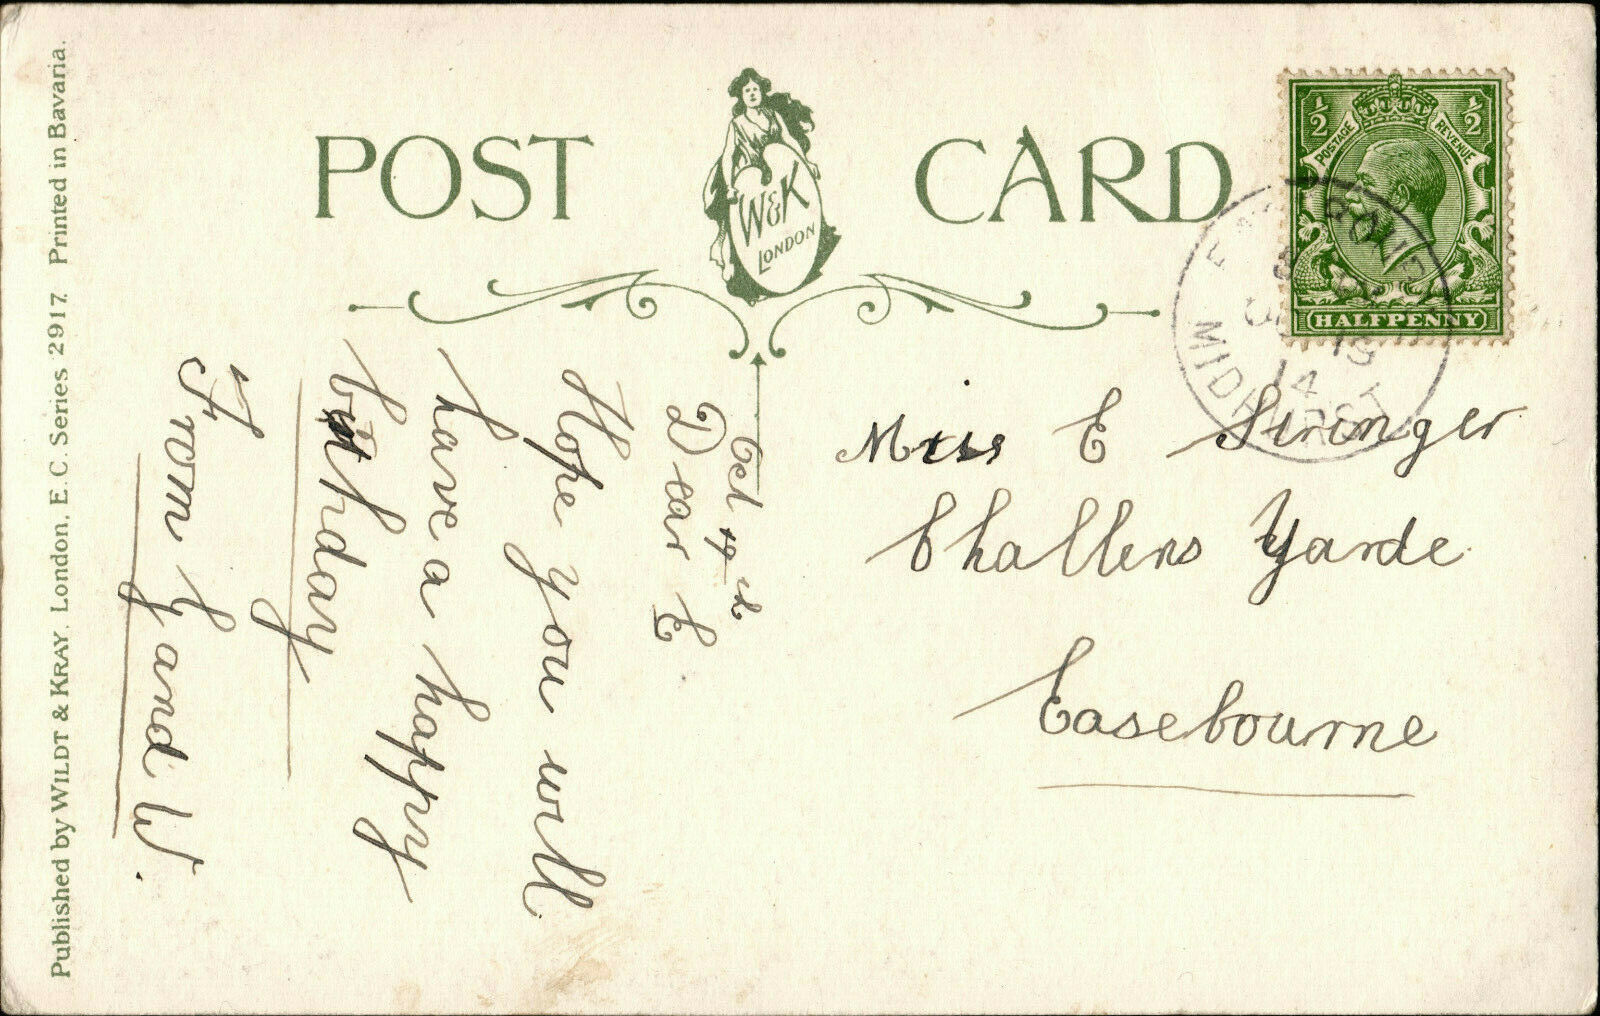 POST CARD
W&K
LONDON
½ ½
POSTAGE REVENUE
HALFPENNY
EASEBOURNE
OC 19
14
MIDHURST
Miss E Stringer
Challens Yarde
Easebourne
Oct 19th
Dear E
Hope you will
have a happy
birthday
From G and W.
Published by WILDT & KRAY, London, E.C. Series 2917. Printed in Bavaria.